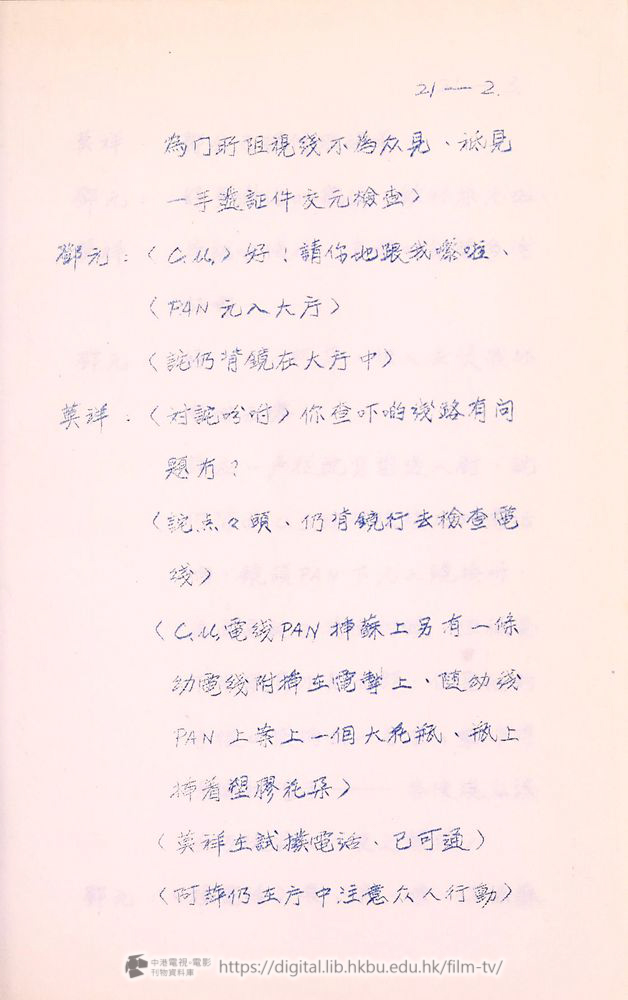 21—2.
為门所阻視綫不為众見、祗見
一手遞証件交元檢查）
鄧元：（C.U.）好！請你哋跟我嚟啦、
（PAN 元入大厅）
（詑仍背鏡在大厅中）
英祥：（对詑吩咐）你查吓啲綫路有问
題冇？
（詑点々頭、仍背鏡行去檢查電
綫）
（C.U.電綫PAN 揷蘇上另有一條
幼電綫附揷在電掣上、隨幼綫
PAN 上案上一個大花瓶、瓶上
揷着塑膠花朶）
（英祥在試撲電话、已可通）
（阿萍仍在厅中注意众人行動）
中港電視·電影
刊物資料庫
https://digital.lib.hkbu.edu.hk/film-tv/